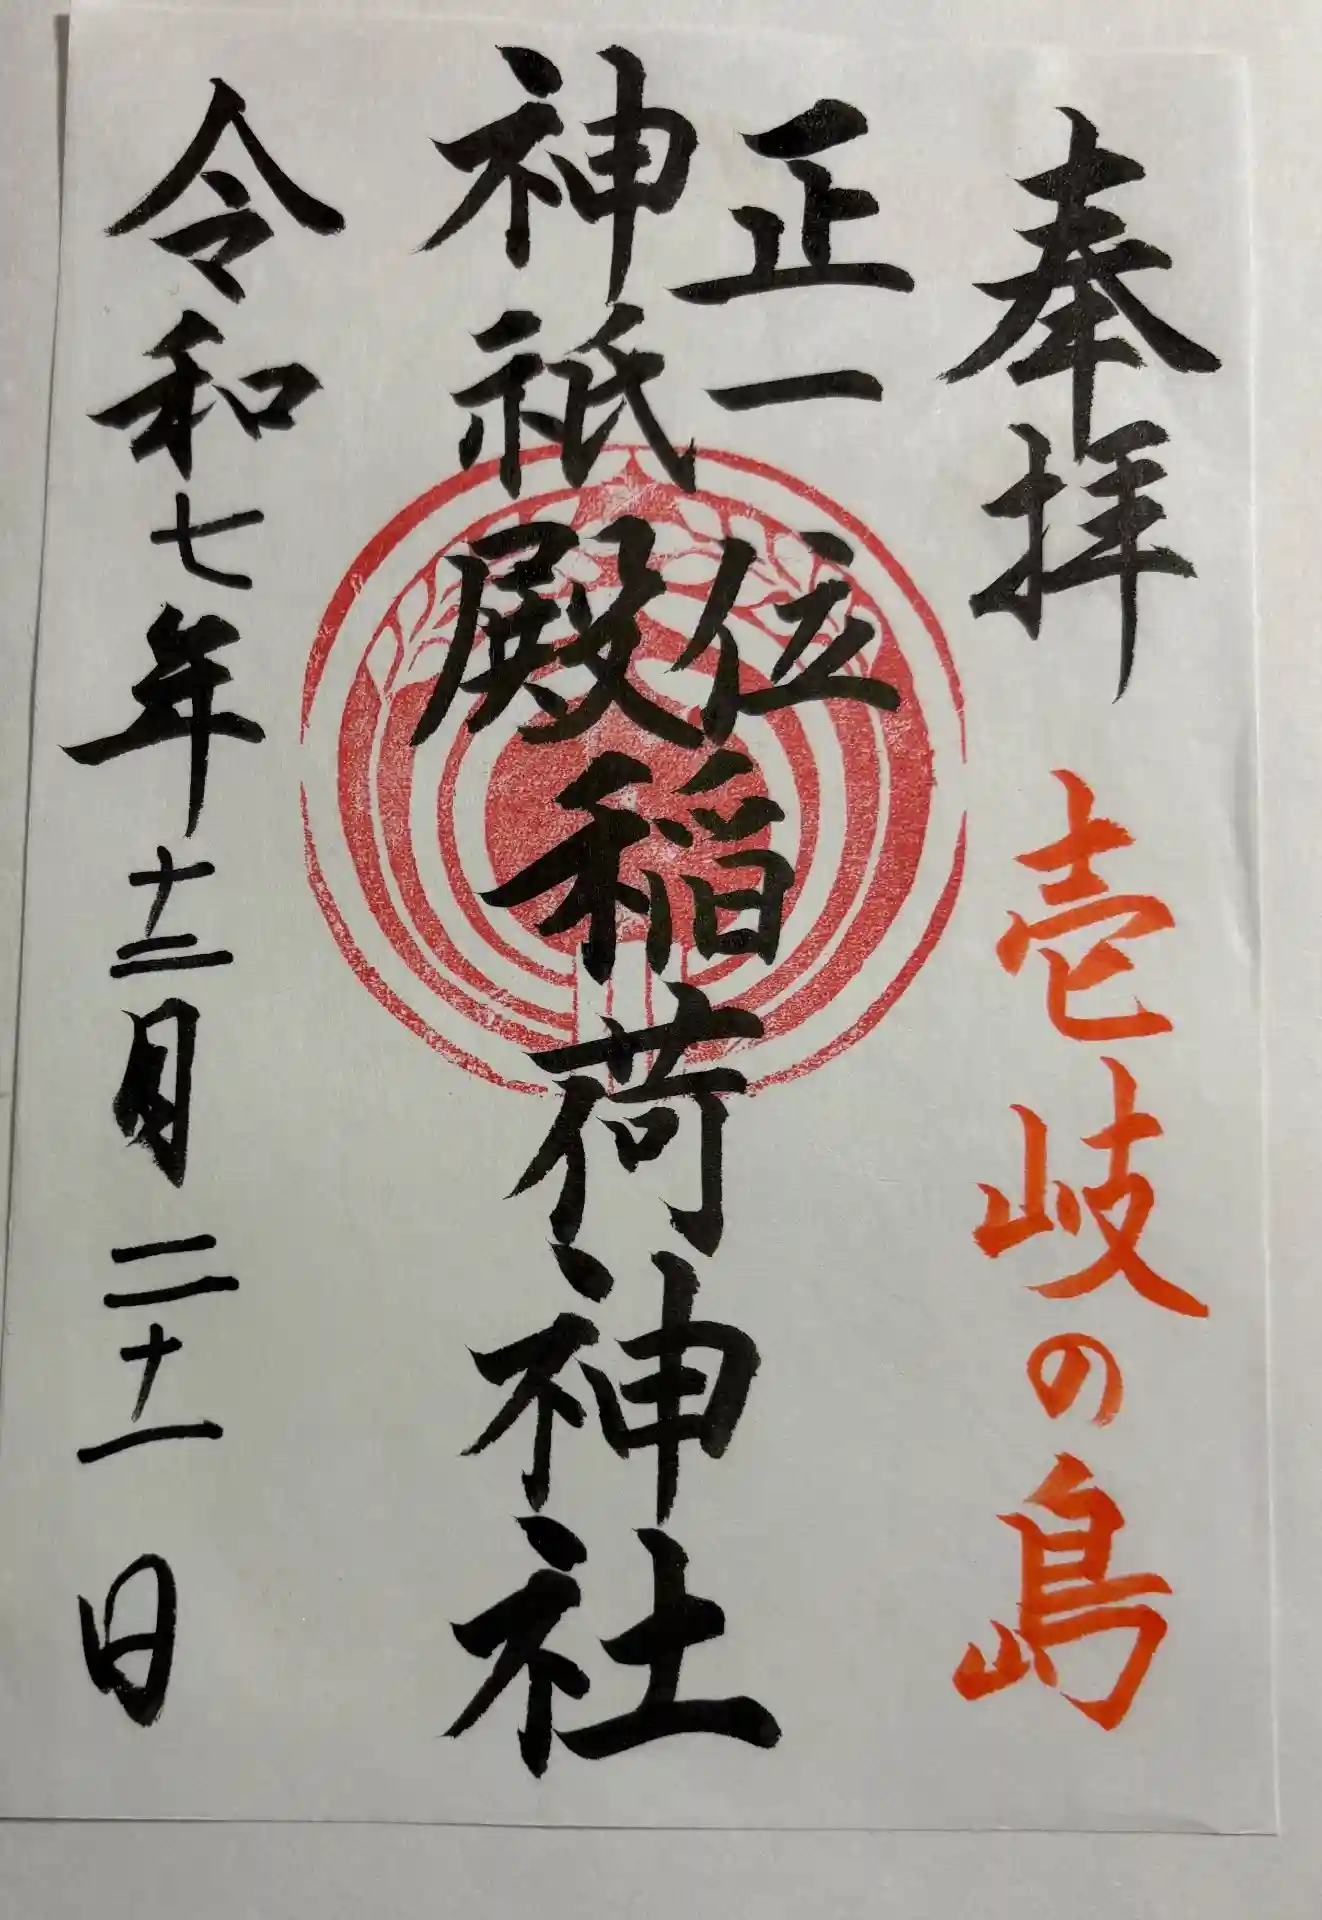 奉拝 壱岐の島
正一位
神祇殿
稲荷神社
令和七年十二月二十一日